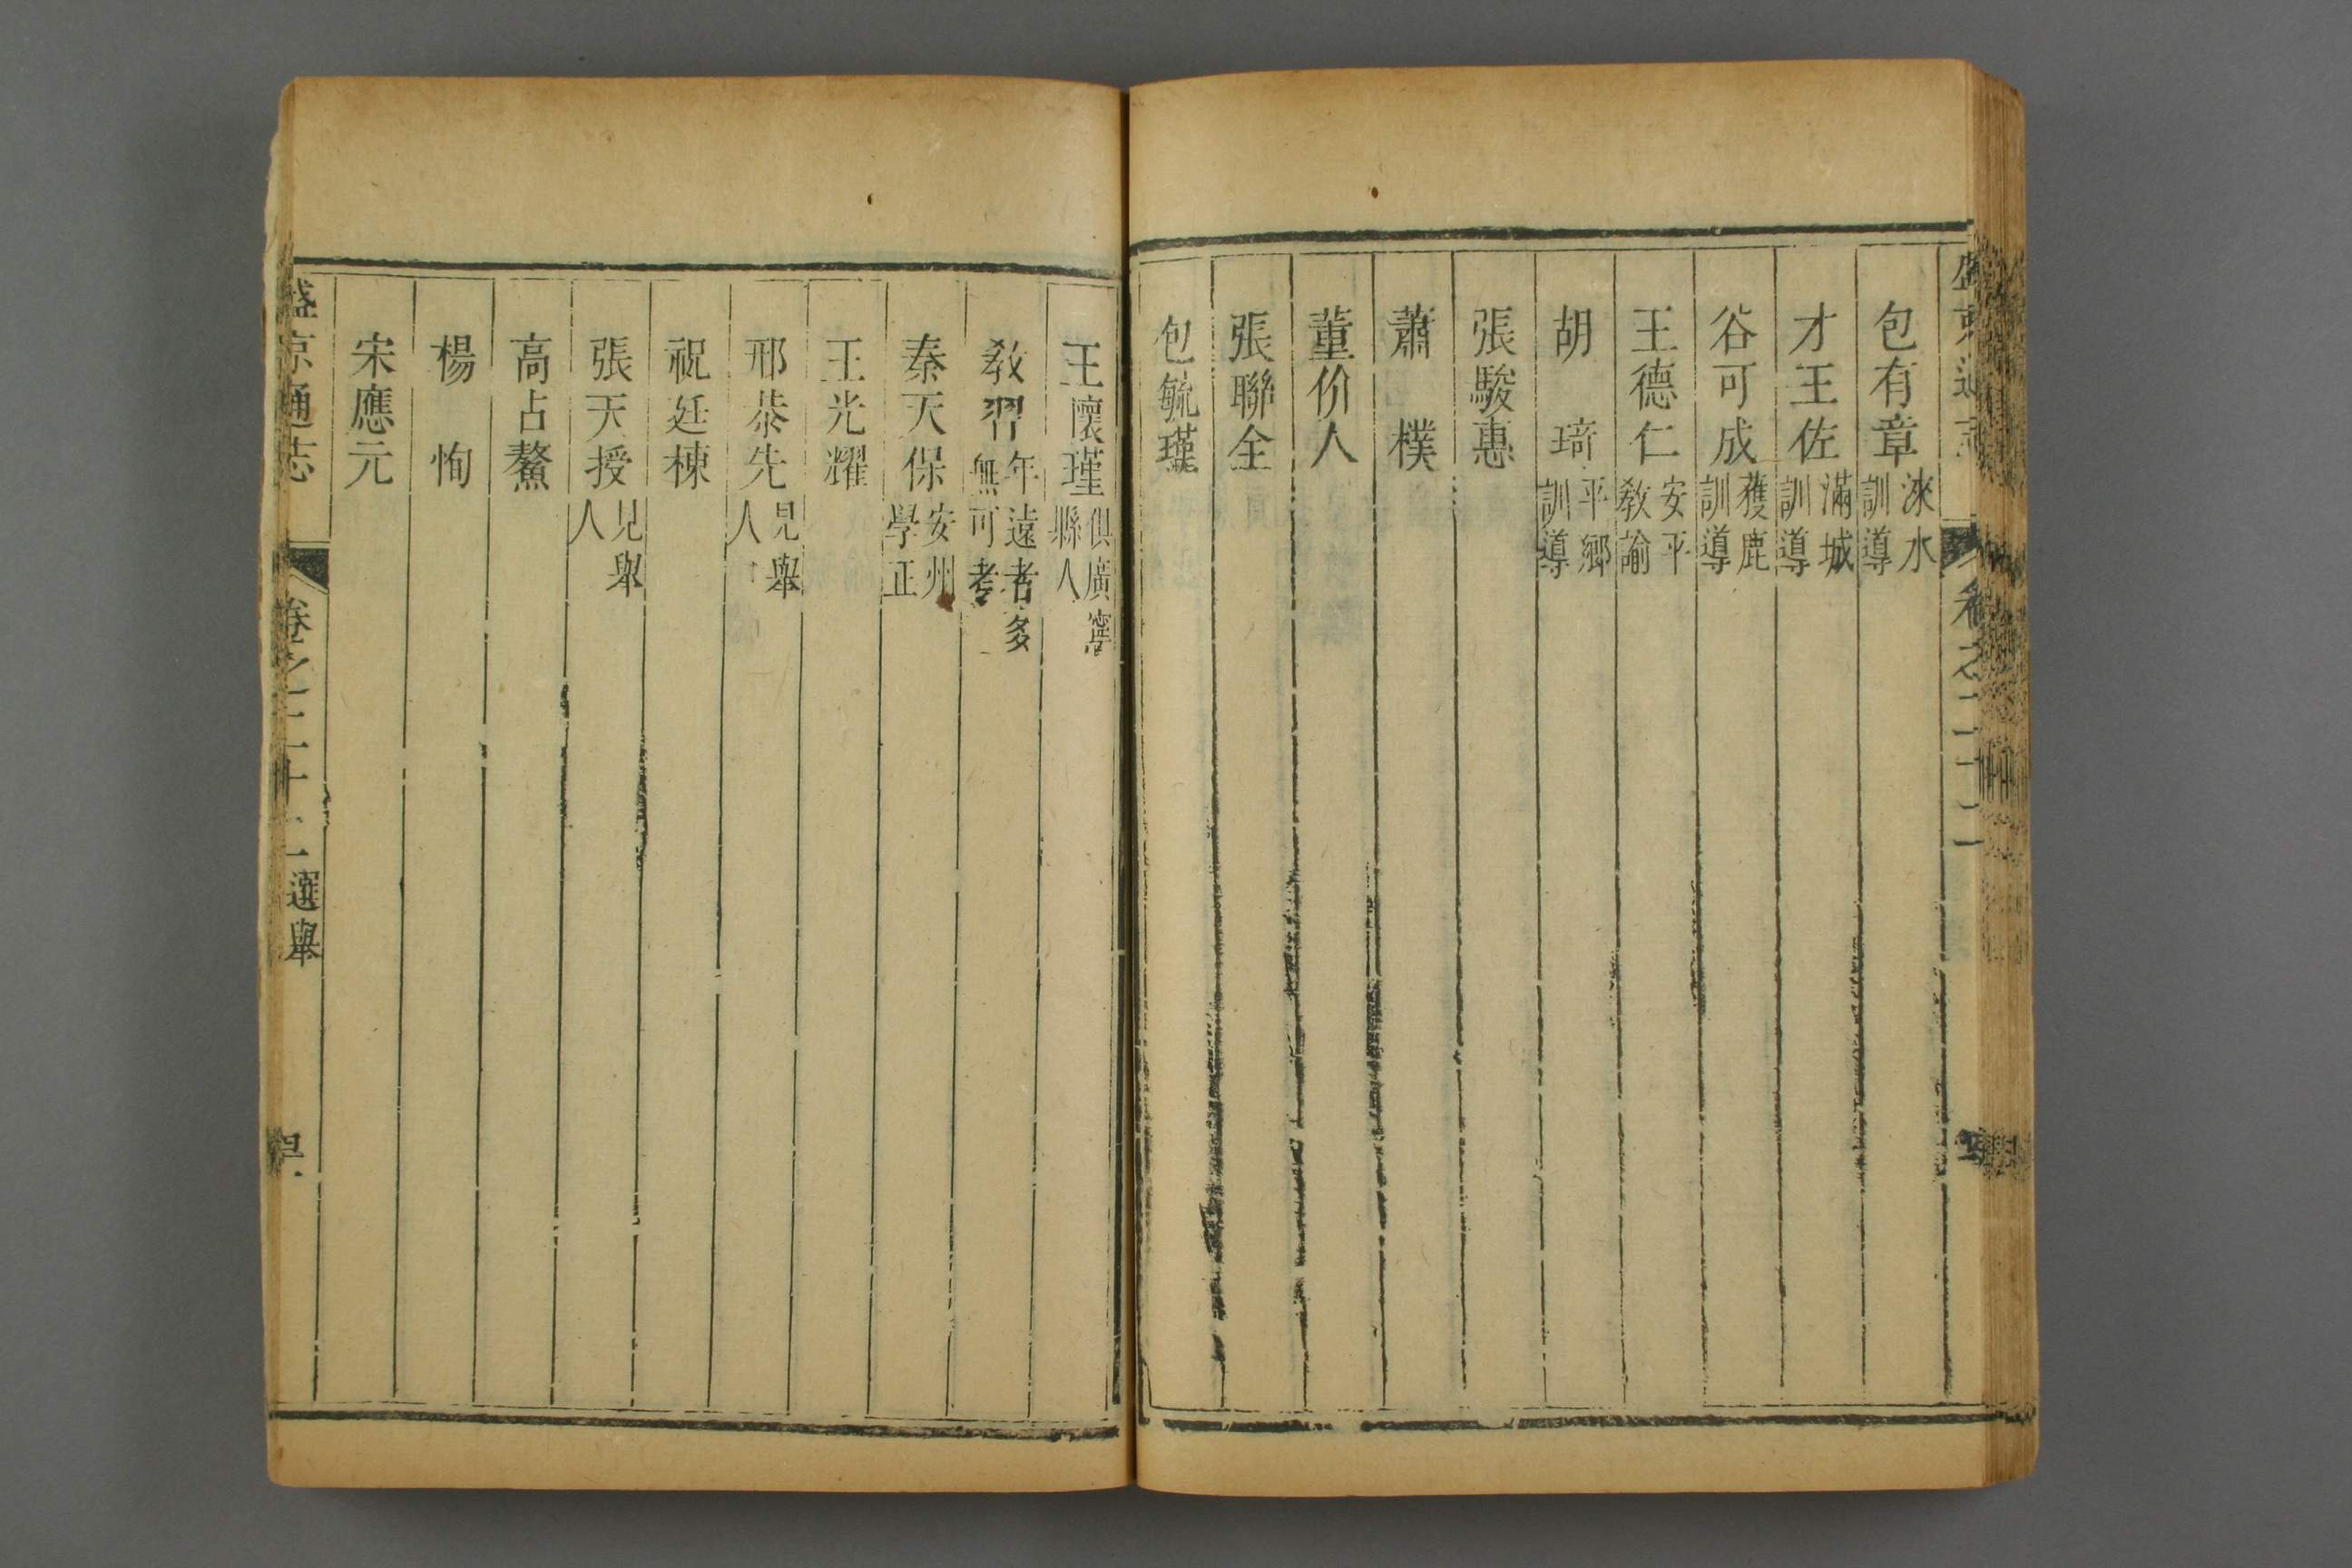 包有章 淶水訓導
才王佐 滿城訓導
谷可成 獲鹿訓導
王德仁 安平教諭
胡琦 平鄉訓導
張駿惠
蕭樸
董价人
張聯全
包毓瑾
王懷瑾 俱廣寧縣人
教習 年遠者多無可考
秦天保 安州學正
王光耀
邢恭先 見舉人
祝廷棟
張天授 見舉人
高占鰲
楊恂
宋應元
盛京通志 卷之二十二 選舉